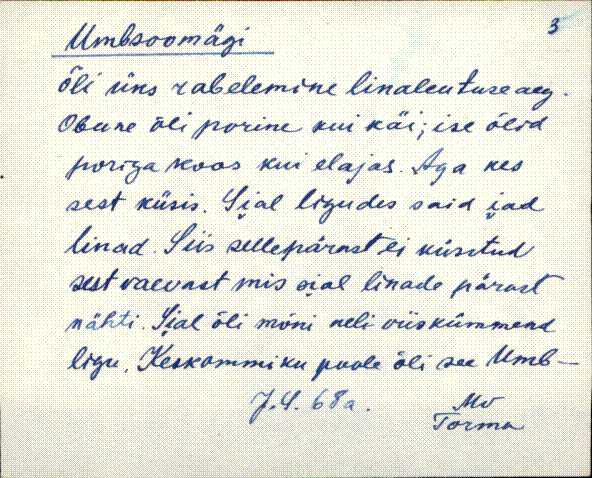 3
Umbsoomägi
Õli üns rabelemine linaleutuseaeg.
Obune õli porine kui käi; ise õlid
poriga koos kui elajas. Aga kes
sest küsis. Sial ligudes said iad
linad. Siis sellepärast ei küsitud
sest vaevast mis sial linade pärast
nähti. Sial õli mõni neli viiskümmend
ligu. Keskommiku poole õli see Umb-
J.S. 68a.
Mv
Torma